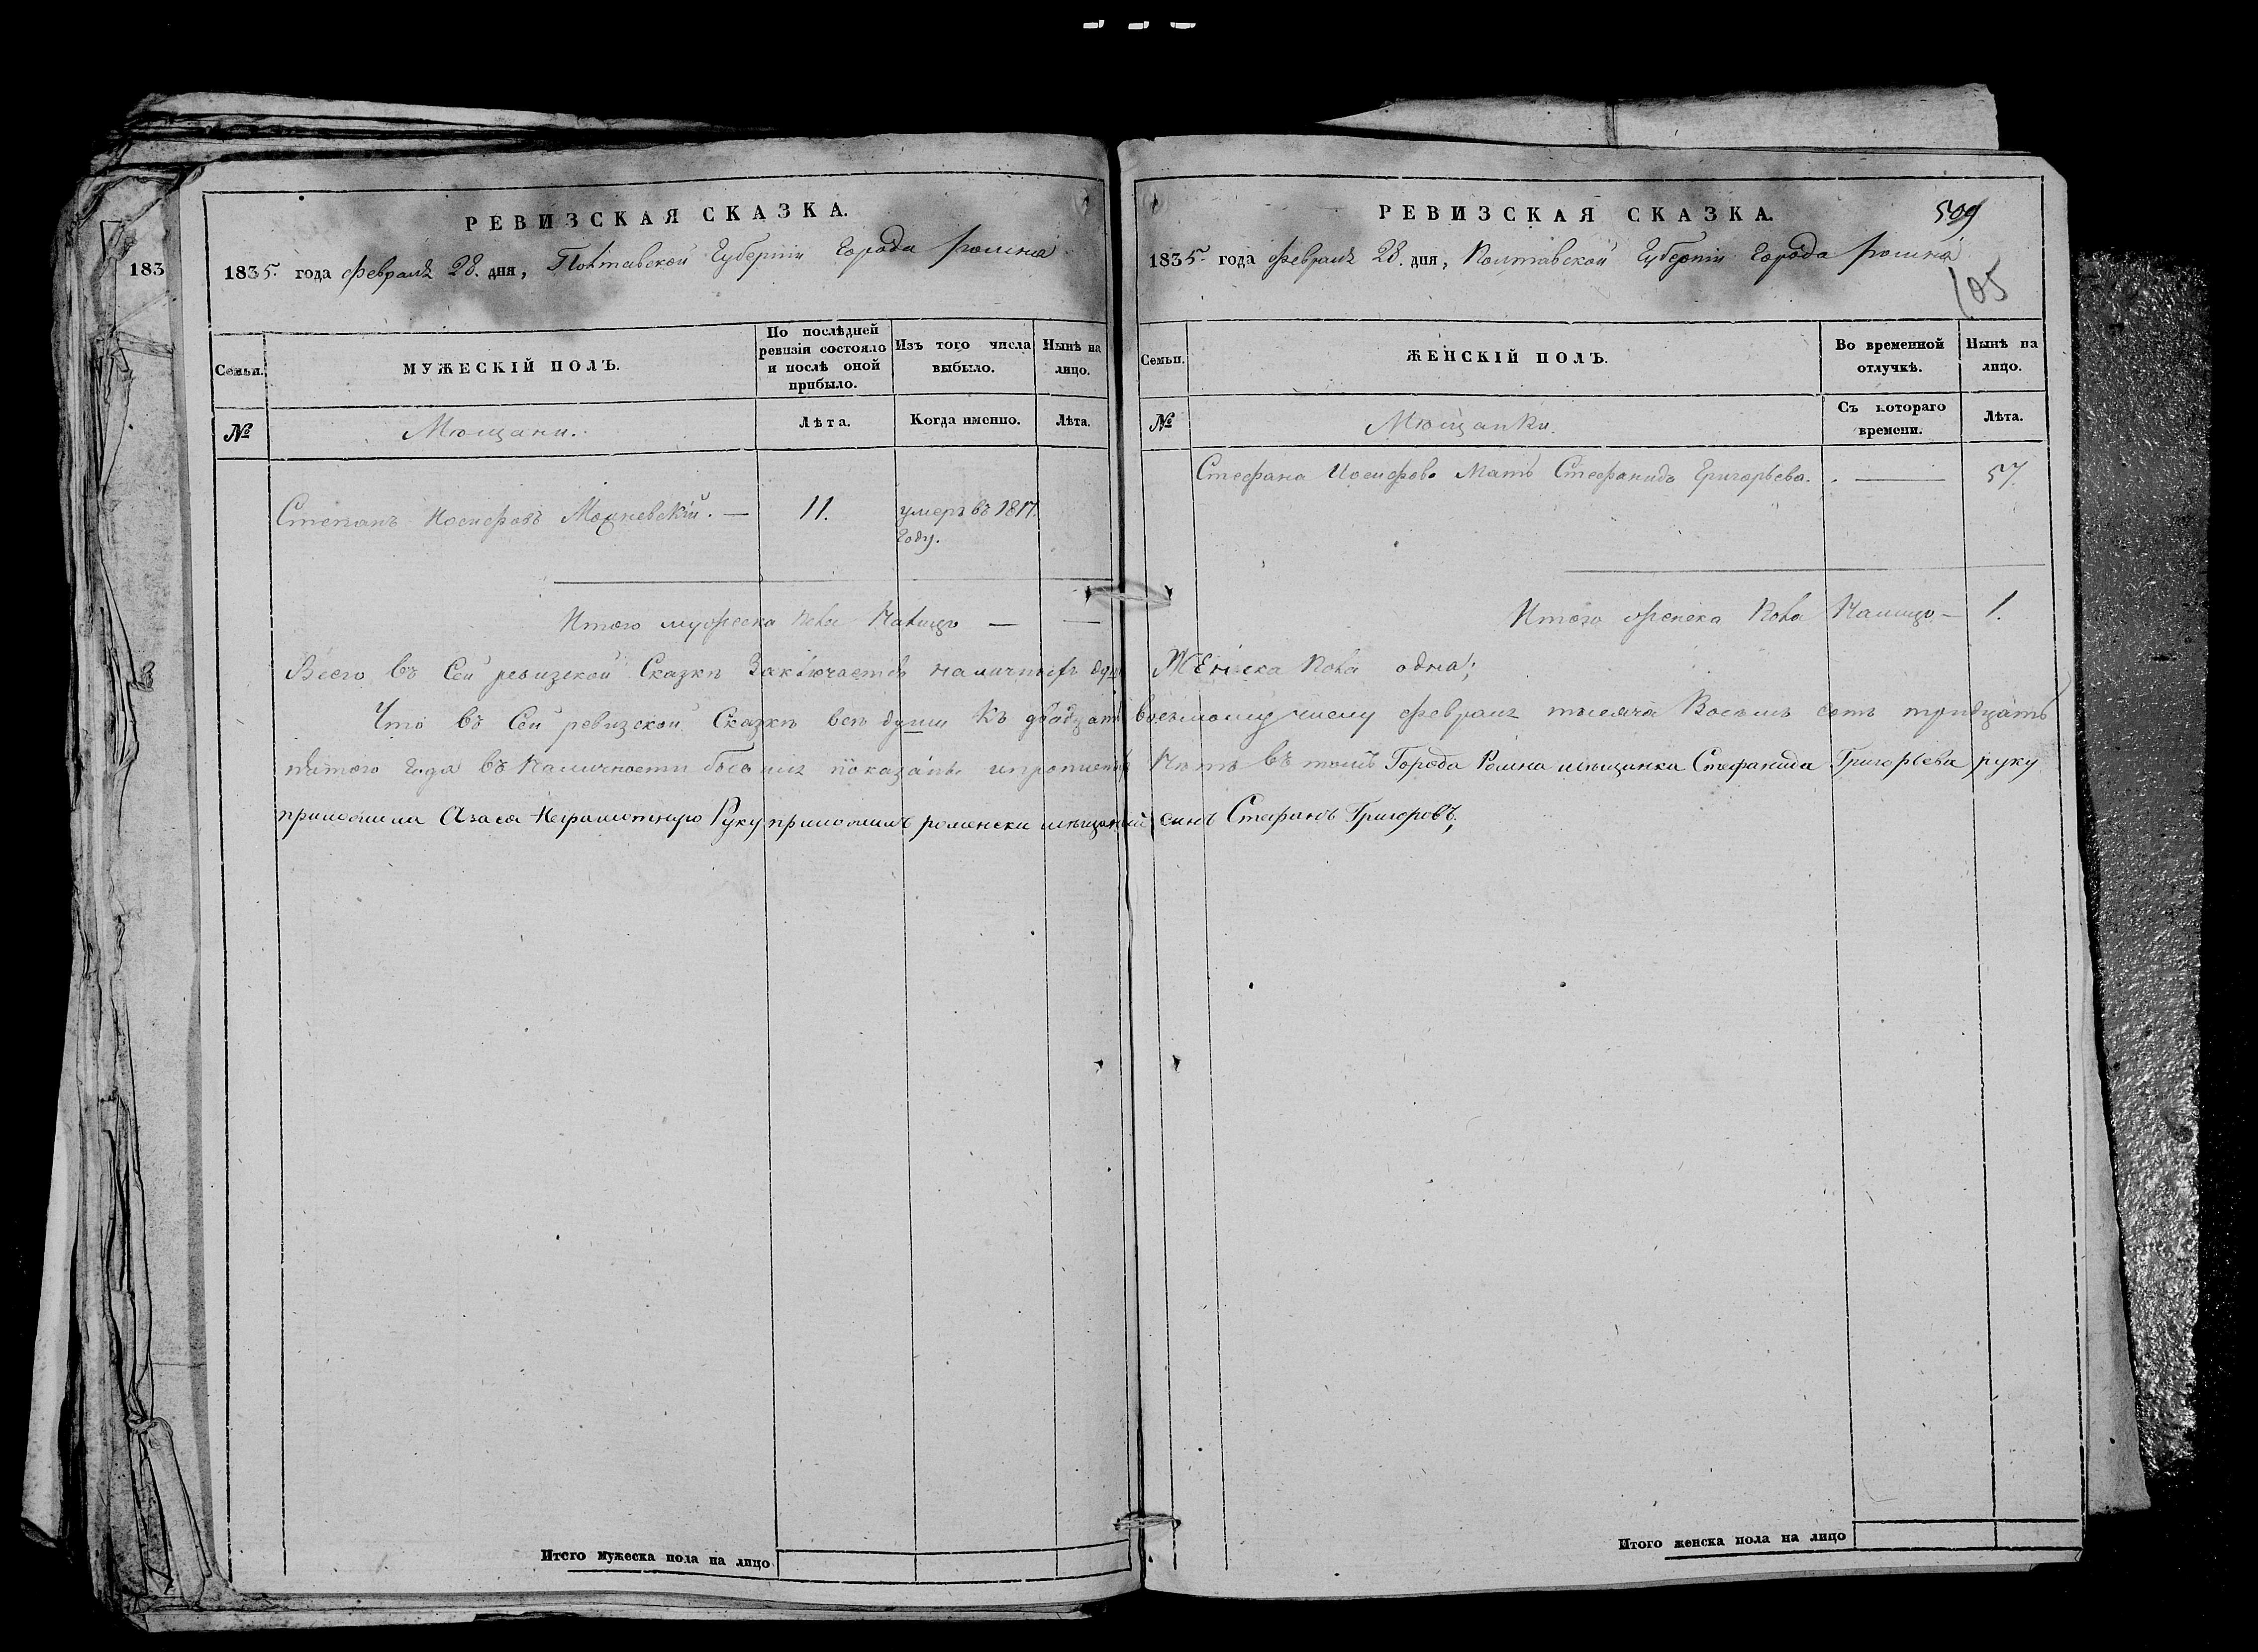 183
РЕВИЗСКАЯ СКАЗКА.
1835. года февраля 28. дня, Полтавской Губернiи Города Ромна
Семьи.
МУЖЕСКIЙ ПОЛЪ.
По послѣдней ревизiи состояло и послѣ оной прибыло.
Изъ того числа выбыло.
Нынѣ на лицо.
№
Мющани.
Лѣта.
Когда именно.
Лѣта.
Степанъ Иосифовъ —
11.
умеръ въ 1817. году.
Итого мужеска пола Налицо — —
Всего въ Сей ревизской Сказкѣ Заключается наличныхъ душъ
Что въ Сей ревизской Сказкѣ всѣ души Къ двадцать
пятого Года въ Наличности показаны
приложила Азаея Неграмотную Руку приложилъ роменски мещански
Итого мужеска пола на лицо
РЕВИЗСКАЯ СКАЗКА.
509
1835 года февраля 28. дня, Полтавской Губернiи Города Ромна
105
Семьи.
ЖЕНСКIЙ ПОЛЪ.
Во временной отлучкѣ.
Нынѣ на лицо.
№
Мющанки.
Съ котораго времени.
Лѣта.
Стефана Иосифова Мать Стефанида Григорьева. —
57.
Итого женска пола Налицо — 1.
Женска пола одна;
восьмому числу февраля тысяча Восемь сотъ тридцать
Нѣтъ въ томъ Города Ромна мещанка Стефанида Григорьева руку
синъ Стефанъ Григоровъ,
Итого женска пола на лицо